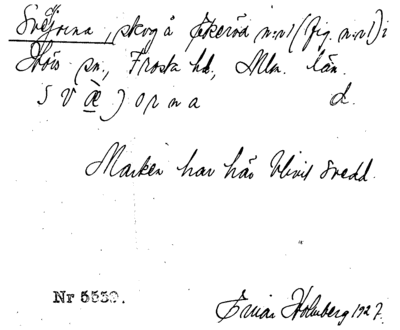 Svejorna, skog å Ekeröd n:r 1 (fig. n:r 1) i
Hörs sn, Frosta hd, Mlm. län.
d.
Marken har här blivit svedd.
Nr 5539.
Einar Holmberg 1927.